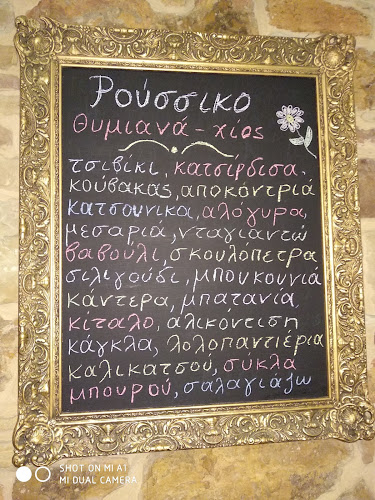 Ρούσσικο
Θυμιανά - χίος
τσιβίκι, κατσιρδισα.
κούβακας, αποκόντριά
κατσουνικα, αλόγυρα,
μεσαριά, νταγιαντώ
βαβούλι, σκουλόπετρα
σιλιγούδι, μπουκουνιά
κάντερα, μπατανία,
κίταλο, αλικόντιση
κάγκλα, λολοπαντιέρια
καλικατσού, σύκλα
μπουρού, σαλαγιάζω
SHOT ON MI A1
MI DUAL CAMERA